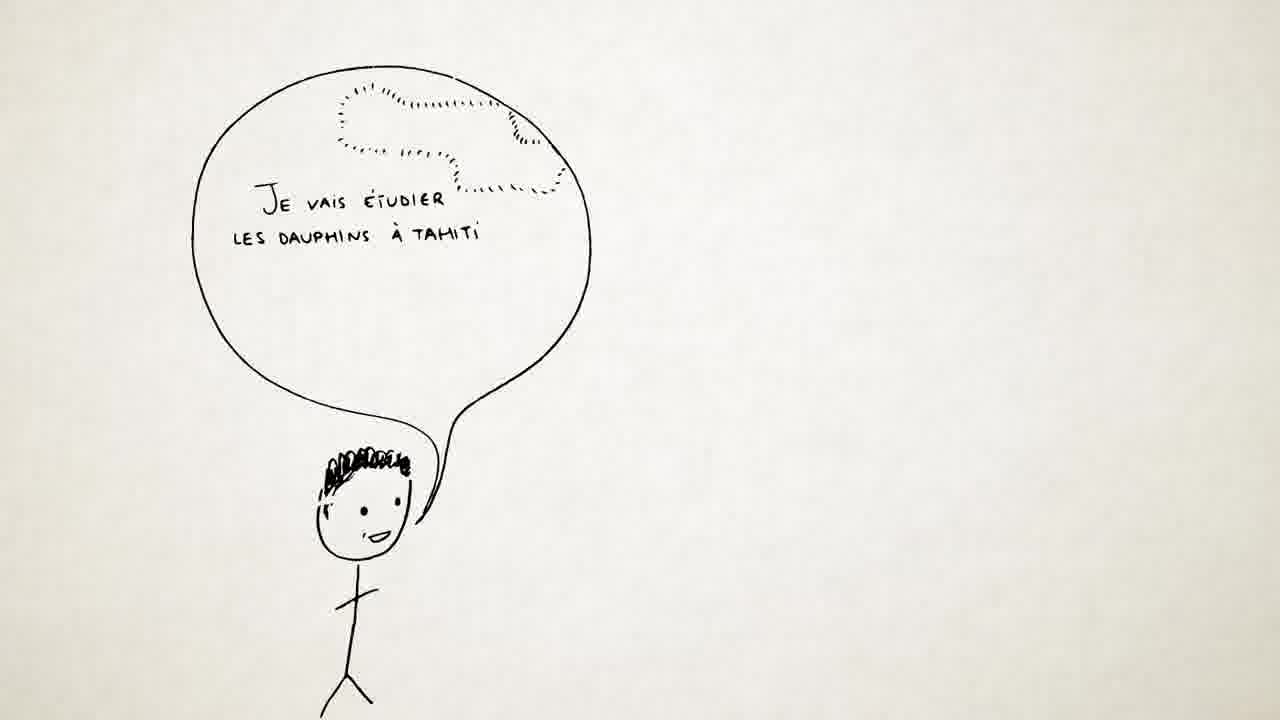 Je vais étudier
les dauphins à Tahiti